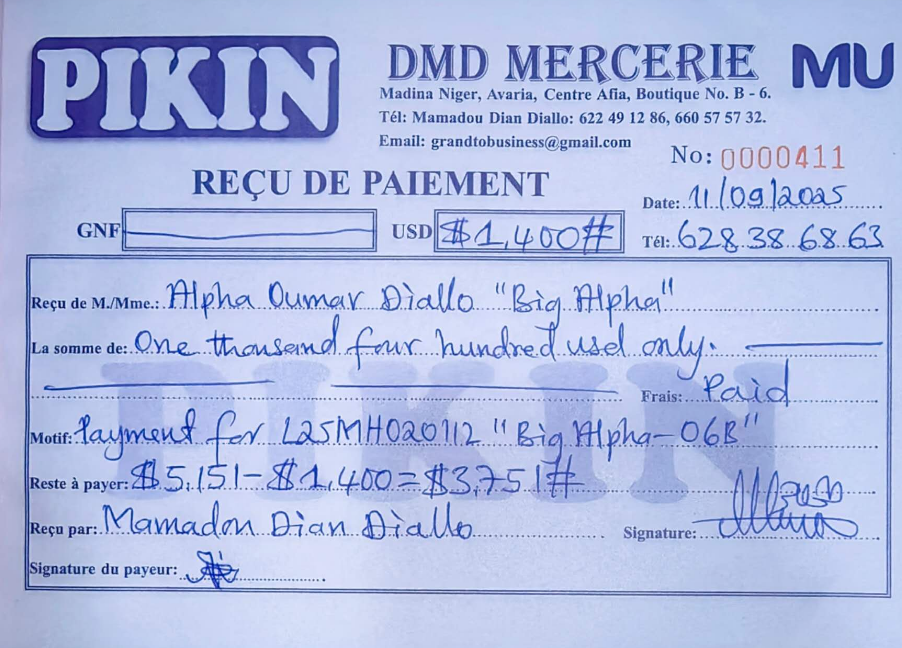 PIKIN
DMD MERCERIE
MU
Madina Niger, Avaria, Centre Afia, Boutique No. B - 6.
Tél: Mamadou Dian Diallo: 622 49 12 86, 660 57 57 32.
Email: grandtobusiness@gmail.com
No: 0000411
REÇU DE PAIEMENT
Date: 11/09/2025
GNF USD $1,400#
Tél: 628.38.68.63
Reçu de M./Mme.: Alpha Oumar Diallo "Big Alpha"
La somme de: One thousand four hundred usd only.
Frais: Paid
Motif: Payment for L25MH020112 "Big Alpha-06B"
Reste à payer: $5,151-$1,400=$3,751#
Reçu par: Mamadou Dian Diallo Signature:
Signature du payeur:
PIKIN